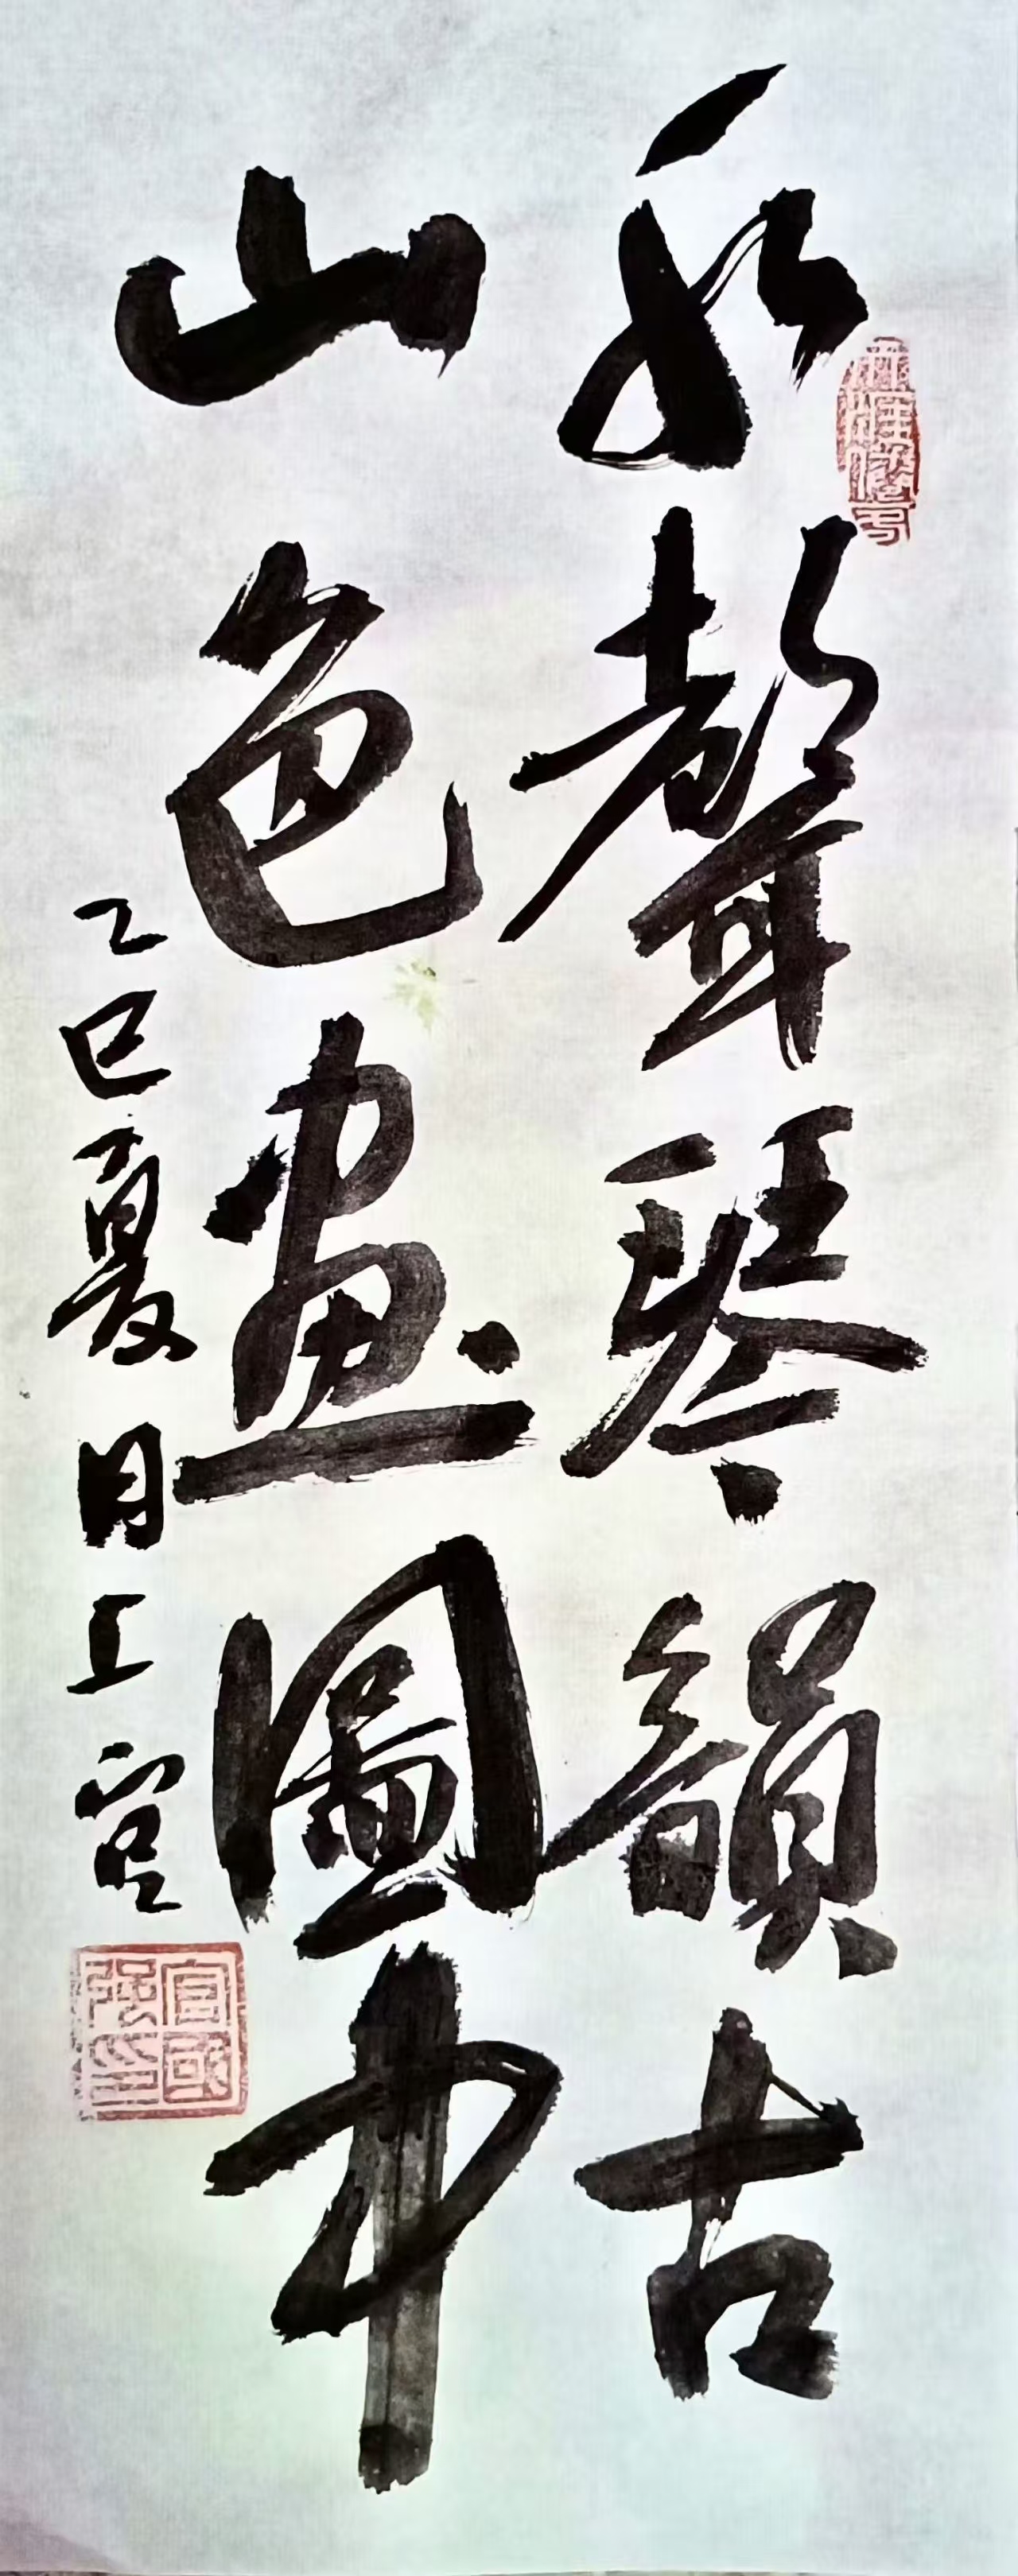 水聲琴韻古
山色畫圖中
乙巳夏月